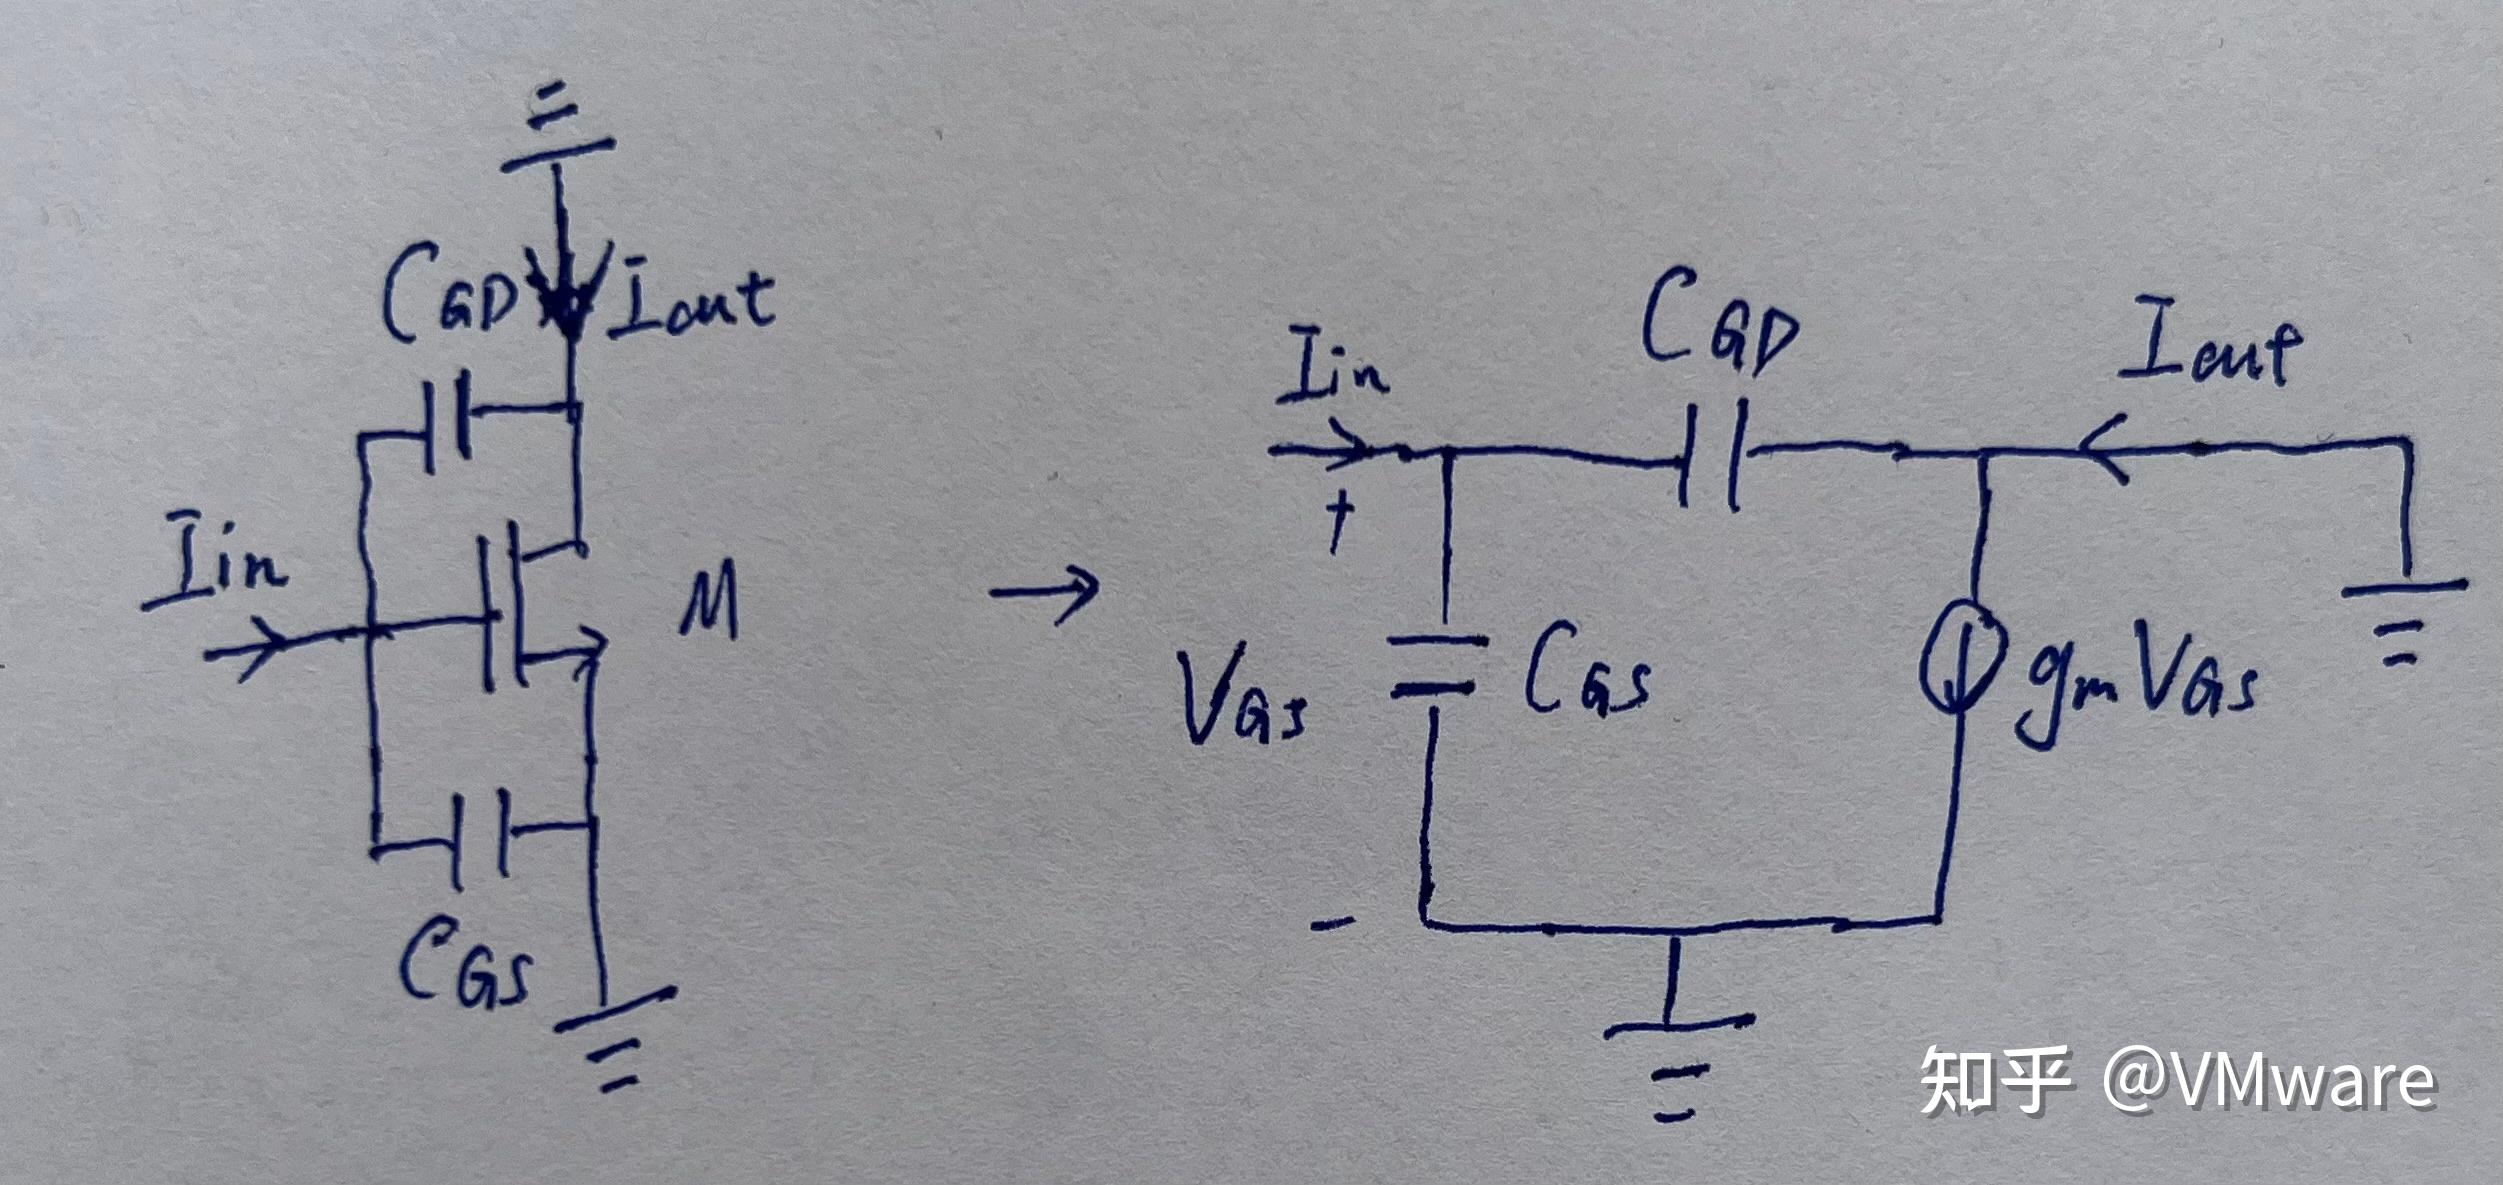 CGD
Iout
Iin
M
CGS
Iin
+
VGS
-
CGD
Iout
CGS
gmVGS
知乎 @VMware